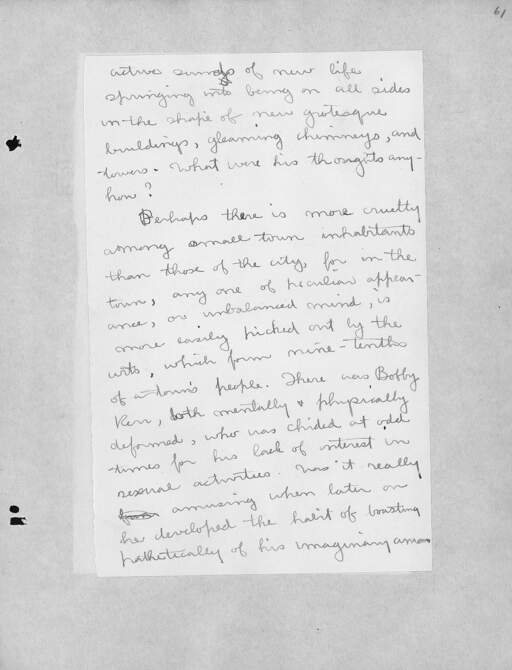 61
active surge of new life
springing into being on all sides
in the shape of new grotesque
buildings, gleaming chimneys, and
towers. What were his thoughts any-
how?
Perhaps there is more cruelty
among small town inhabitants
than those of the city, for in the
town, any one of peculiar appear-
ance, or unbalanced mind, is
more easily picked out by the
wits, which form nine-tenths
of a town's people. There was Bobby
Kerr, both mentally & physically
deformed, who was chided at odd
times for his lack of interest in
sexual activities. Was it really
amusing when later on
he developed the habit of boasting
pathetically of his imaginary